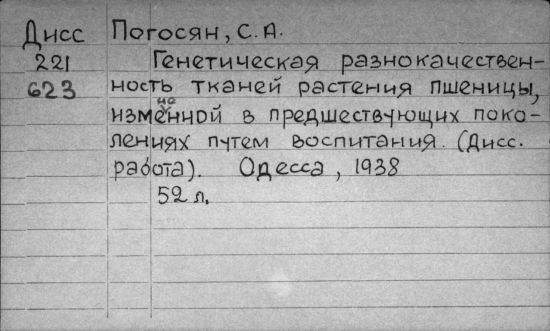 Дисс Погосян, С.А.
221 Генетическая разнокачествен-
623 ность тканей растения пшеницы,
измененной в предшествующих поко-
лениях путем воспитания. (Дисс.
работа). Одесса, 1938
52 л.